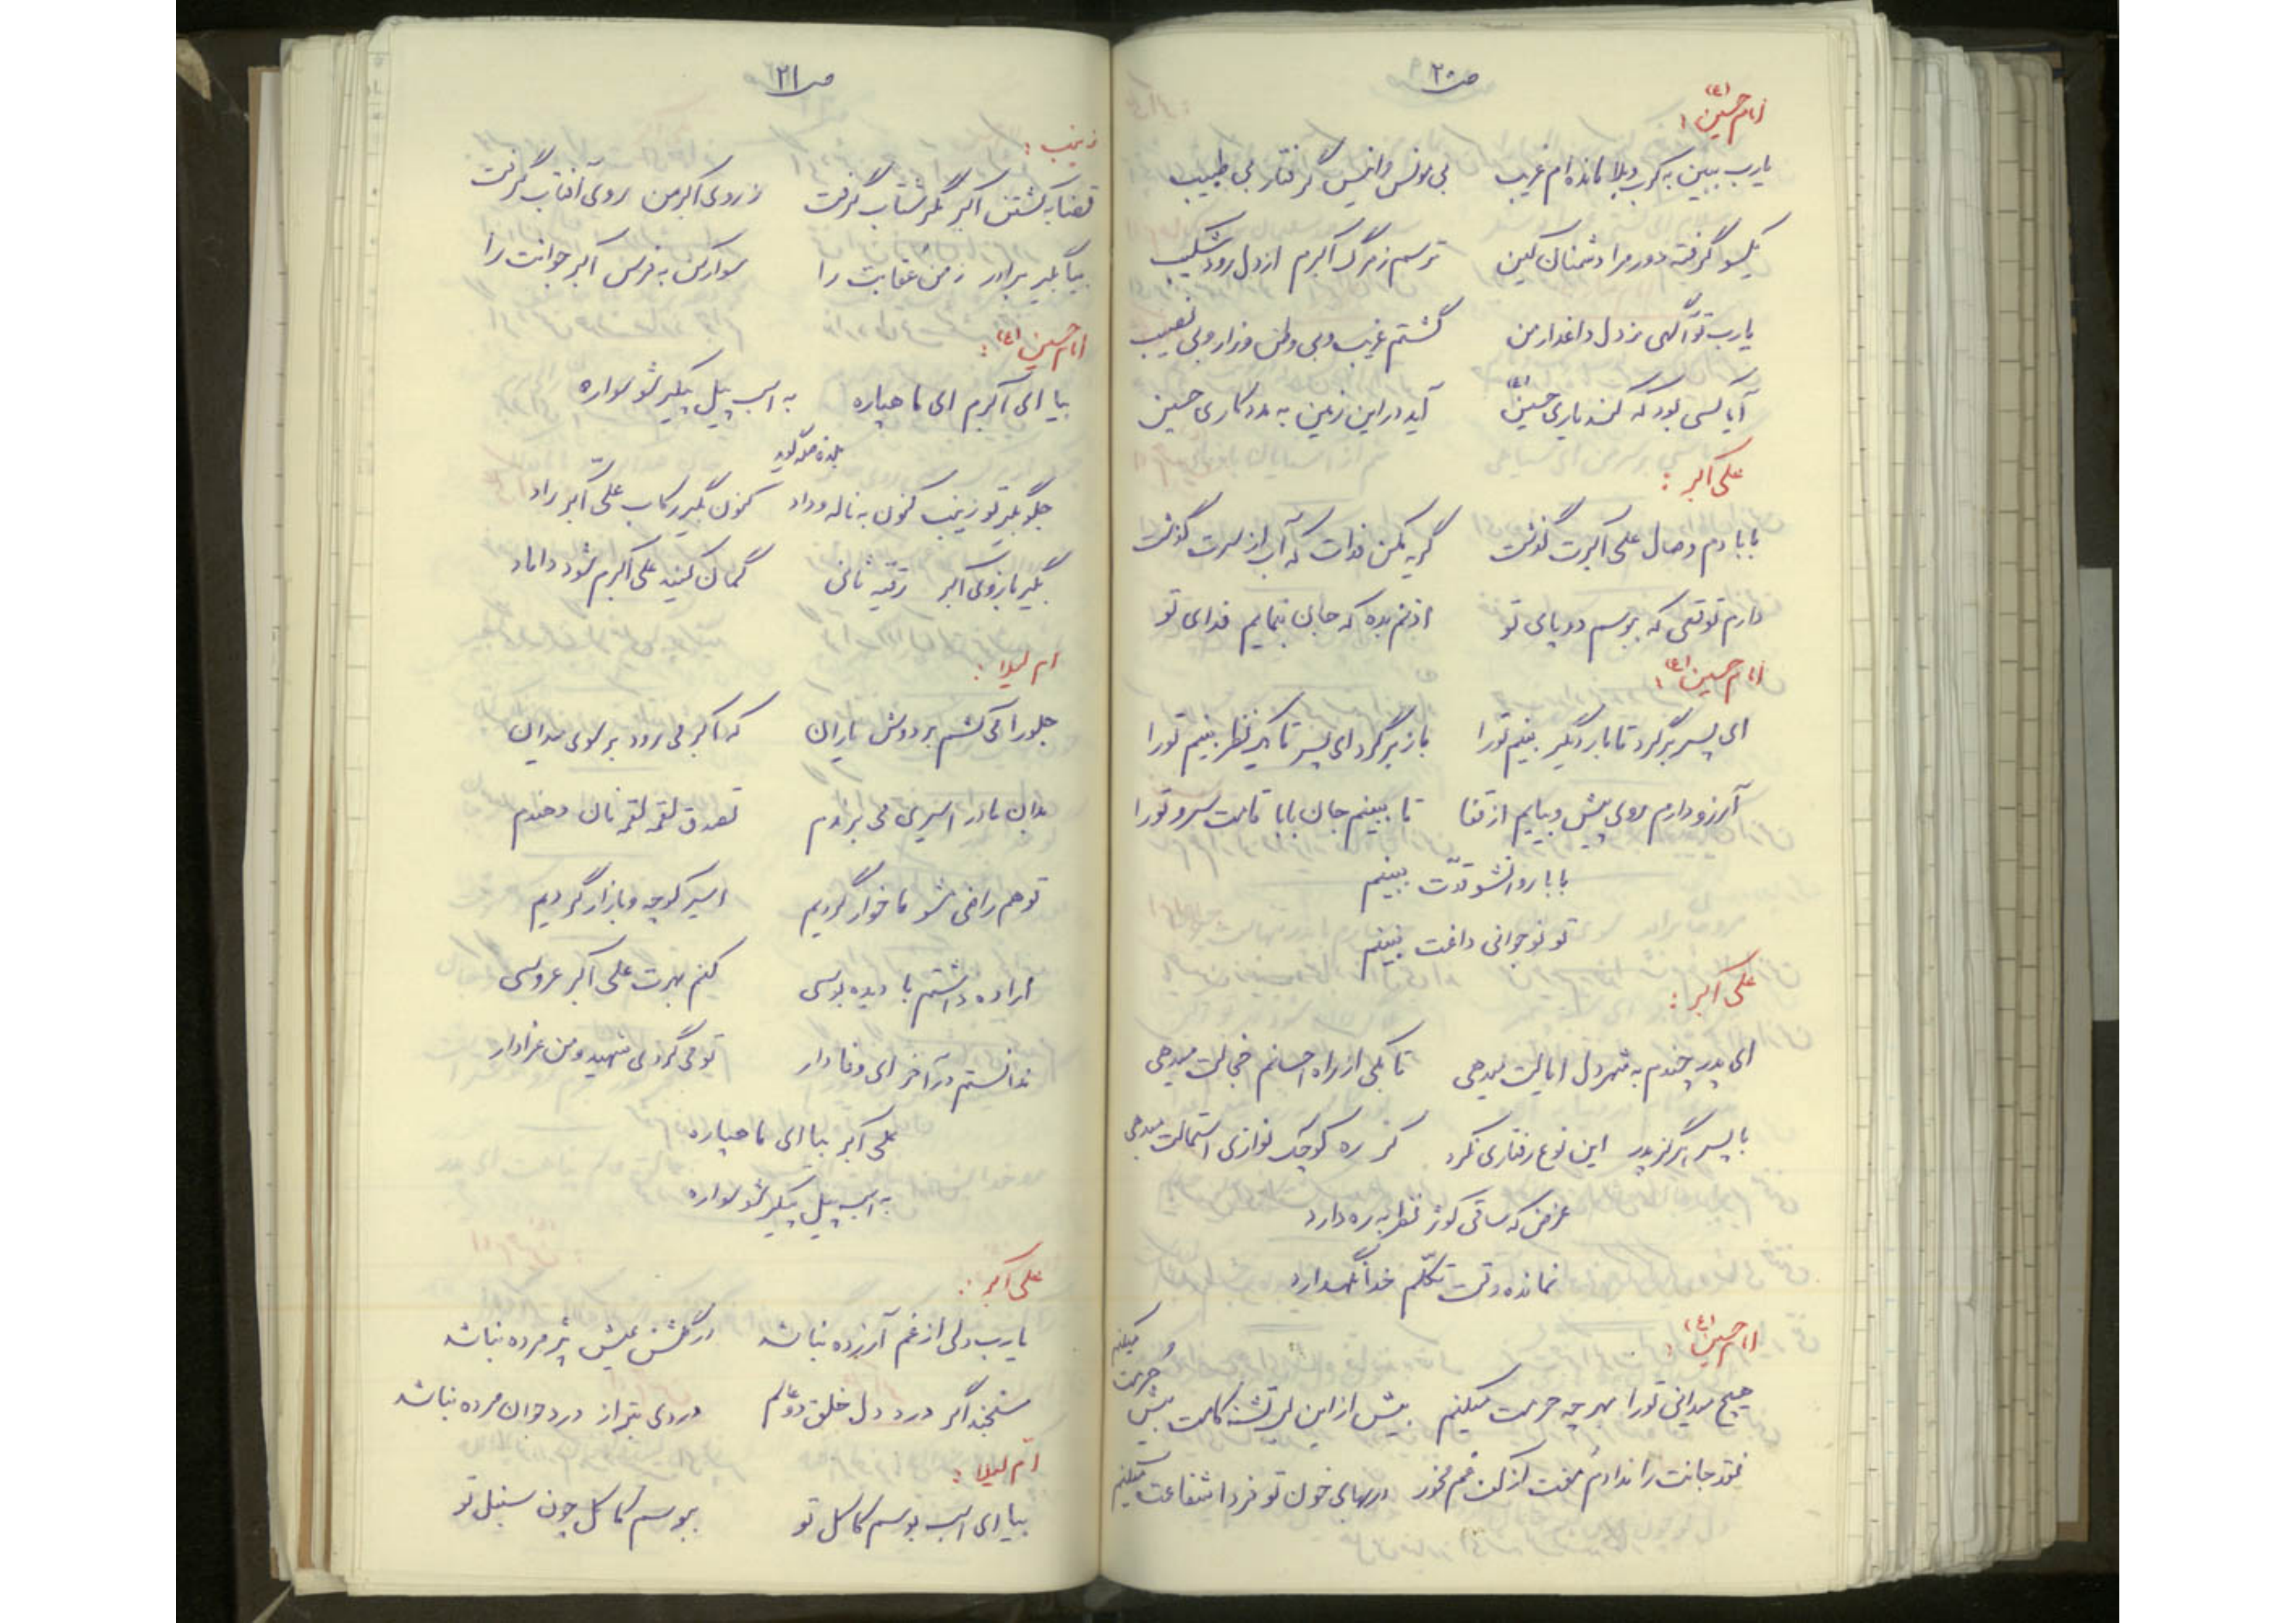 ص۲۰
امام حسین (ع) :
یارب ببین به کرب و بلا مانده ام غریب بی مونس و انیس گرفتار بی طبیب
یکسو گرفته دور مرا دشمنان کین ترسم ز مرگ اکبرم از دل رود شکیب
یارب تو آگهی ز دل داغدار من گشتم غریب و بی وطن و زار و بی نصیب
آیا کسی بود که کند یاری حسین (ع) آید در این زمین به مددکاری حسین
علی اکبر :
بابا دم وصال علی اکبرت گذشت گریه مکن فدات که آب از سرت گذشت
دارم توقعی که ببوسم دو پای تو اذنم بده که جان بنمایم فدای تو
امام حسین (ع) :
ای پسر برگرد تا بار دیگر بینم تو را باز برگرد ای پسر تا یک نظر بینم تو را
آرزو دارم روی پیش و بیایم از قفا تا ببینم جان بابا قامت سرو تو را
بابا روانشو قدّت ببینم
تو نوجوانی داغت نبینم
علی اکبر :
ای پدر چندم به شهر دل ایالت میدهی تا بکی از راه احسانم خجالت میدهی
با پسر هرگز پدر این نوع رفتاری نکرد کز ره کوچک نوازی استمالت میدهی
غرض که ساقی کوثر نظر به ره دارد
نمانده وقت تکلّم خدا نگهدارد
امام حسین (ع) :
هیچ میدانی تو را بهر چه حرمت میکنم بیش از این لب تشنه کامت بیش حرمت میکنم
نقد جانت را ندادم مفت از کف غم مخور در بهای خون تو فردا شفاعت میکنم
ص۲۱
زینب :
قضا به کشتن اکبر مگر شتاب گرفت ز روی اکبر من روی آفتاب گرفت
بیا بگیر برادر ز من عقابت را سوار کن به فرس اکبر جوانت را
امام حسین (ع) :
بیا ای اکبرم ای ماهپاره به اسب پیل پیکر شو سواره
جلو بگیر تو زینب کنون به ناله و داد کنون بگیر رکاب علی اکبر راد
بگیر بازوی اکبر رقیه ثانی گمان کنید علی اکبرم شود داماد
ام لیلا :
جلو را می کشم بر دوش یاران که اکبر می رود بر سوی میدان
بدان مادر اسیری می برندم تصدق لقمه لقمه نان دهندم
تو هم راضی مشو ما خوار گردیم اسیر کوچه و بازار گردیم
اراده داشتم با دیده بوسی کنم بهرت علی اکبر عروسی
ندانستم در آخر ای وفادار تو می گردی شهید و من عزادار
علی اکبر بیا ای ماهپاره
به اسب پیل پیکر شو سواره
علی اکبر :
یارب دلی از غم آزرده نباشد در گلشن عیش پژمرده نباشد
سنجند اگر درد دل خلق دو عالم دردی بتر از درد جوان مرده نباشد
ام لیلا :
بیا ای اسب بوسم کاکل تو ببوسم کاکل چون سنبل تو